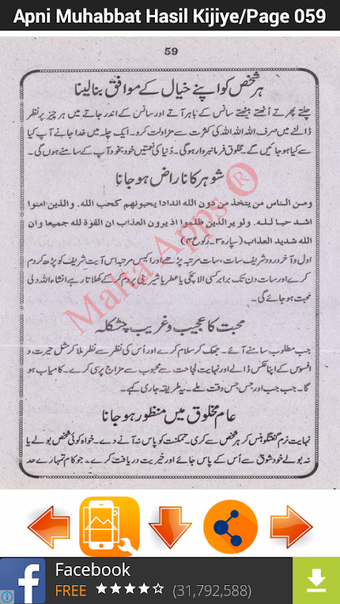 Apni Muhabbat Hasil Kijiye/Page 059
59
ہر شخص کو اپنے خیال کے موافق بنا لینا
چلتے پھرتے اُٹھتے بیٹھتے سانس کے باہر آتے اور سانس کے اندر جاتے میں ہر چیز پر نظر
ڈالنے میں صرف اللہ اللہ اللہ کی کثرت سے مزاولت کرو۔ ایک چلہ میں خدا جانے آپ کیا
سے کیا ہو جائیں گے۔ مخلوق فرمانبردار ہوگی۔ دُنیا کی نعمتیں خود بخود آپ کے سامنے ہوں گی۔
شوہر کا ناراض ہو جانا
ومن الناس من يتخذ من دون الله اندادا يحبونهم كحب الله. والذين امنوا
اشد حبا لله. ولو ير الذين ظلموا اذ يرون العذاب ان القوة لله جميعا وان
الله شديد العذاب (پارہ ۲۔ رکوع ۴)
اول و آخر درود شریف سات، سات مرتبہ پڑھے اور اکیس مرتبہ اس آیت شریف کو پڑھ کر دم
کرے اور سات دن تک برابر کسی الائچی یا عطر یا شیرینی پر دم کر کے کھلاتا رہے انشاء اللہ دلی
محبت ہو جائے گی۔
محبت کا عجیب و غریب چٹکلہ
جب مطلوب سامنے آئے۔ جھک کر سلام کرے اور اُس کی نظر سے نظر ملا کر مثل حیرت و
افسوس کے اپنا عکس ڈالے اور نہایت لجاحت سے محبوب سے مزاج پرسی کرے۔ کامیاب ہو
گا۔ جب جب اور جس جس وقت ملے۔ یہ طریقہ جاری رکھے۔
عام مخلوق میں منظور ہو جانا
نہایت نرم گفتگو ہنس کر ہر شخص سے کری۔ تمکنت کو پاس نہ آنے دے۔ خواہ کوئی شخص بولے یا
نہ بولے خود شوق سے اُس کے پاس جائے اور خیریت دریافت کرے۔ جو کام تمہارے حد
Maha Apps ®
Facebook
FREE (31,792,588)